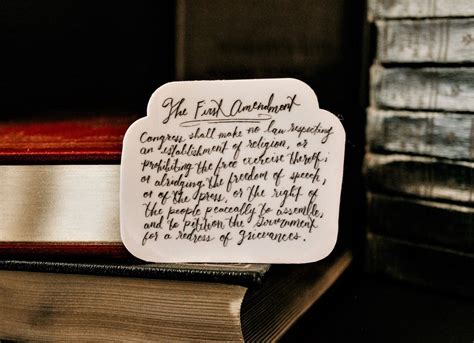 The First Amendment
Congress shall make no law respecting
an establishment of religion, or
prohibiting the free exercise thereof;
or abridging the freedom of speech,
or of the press, or the right of
the people peaceably to assemble,
and to petition the Government
for a redress of grievances.